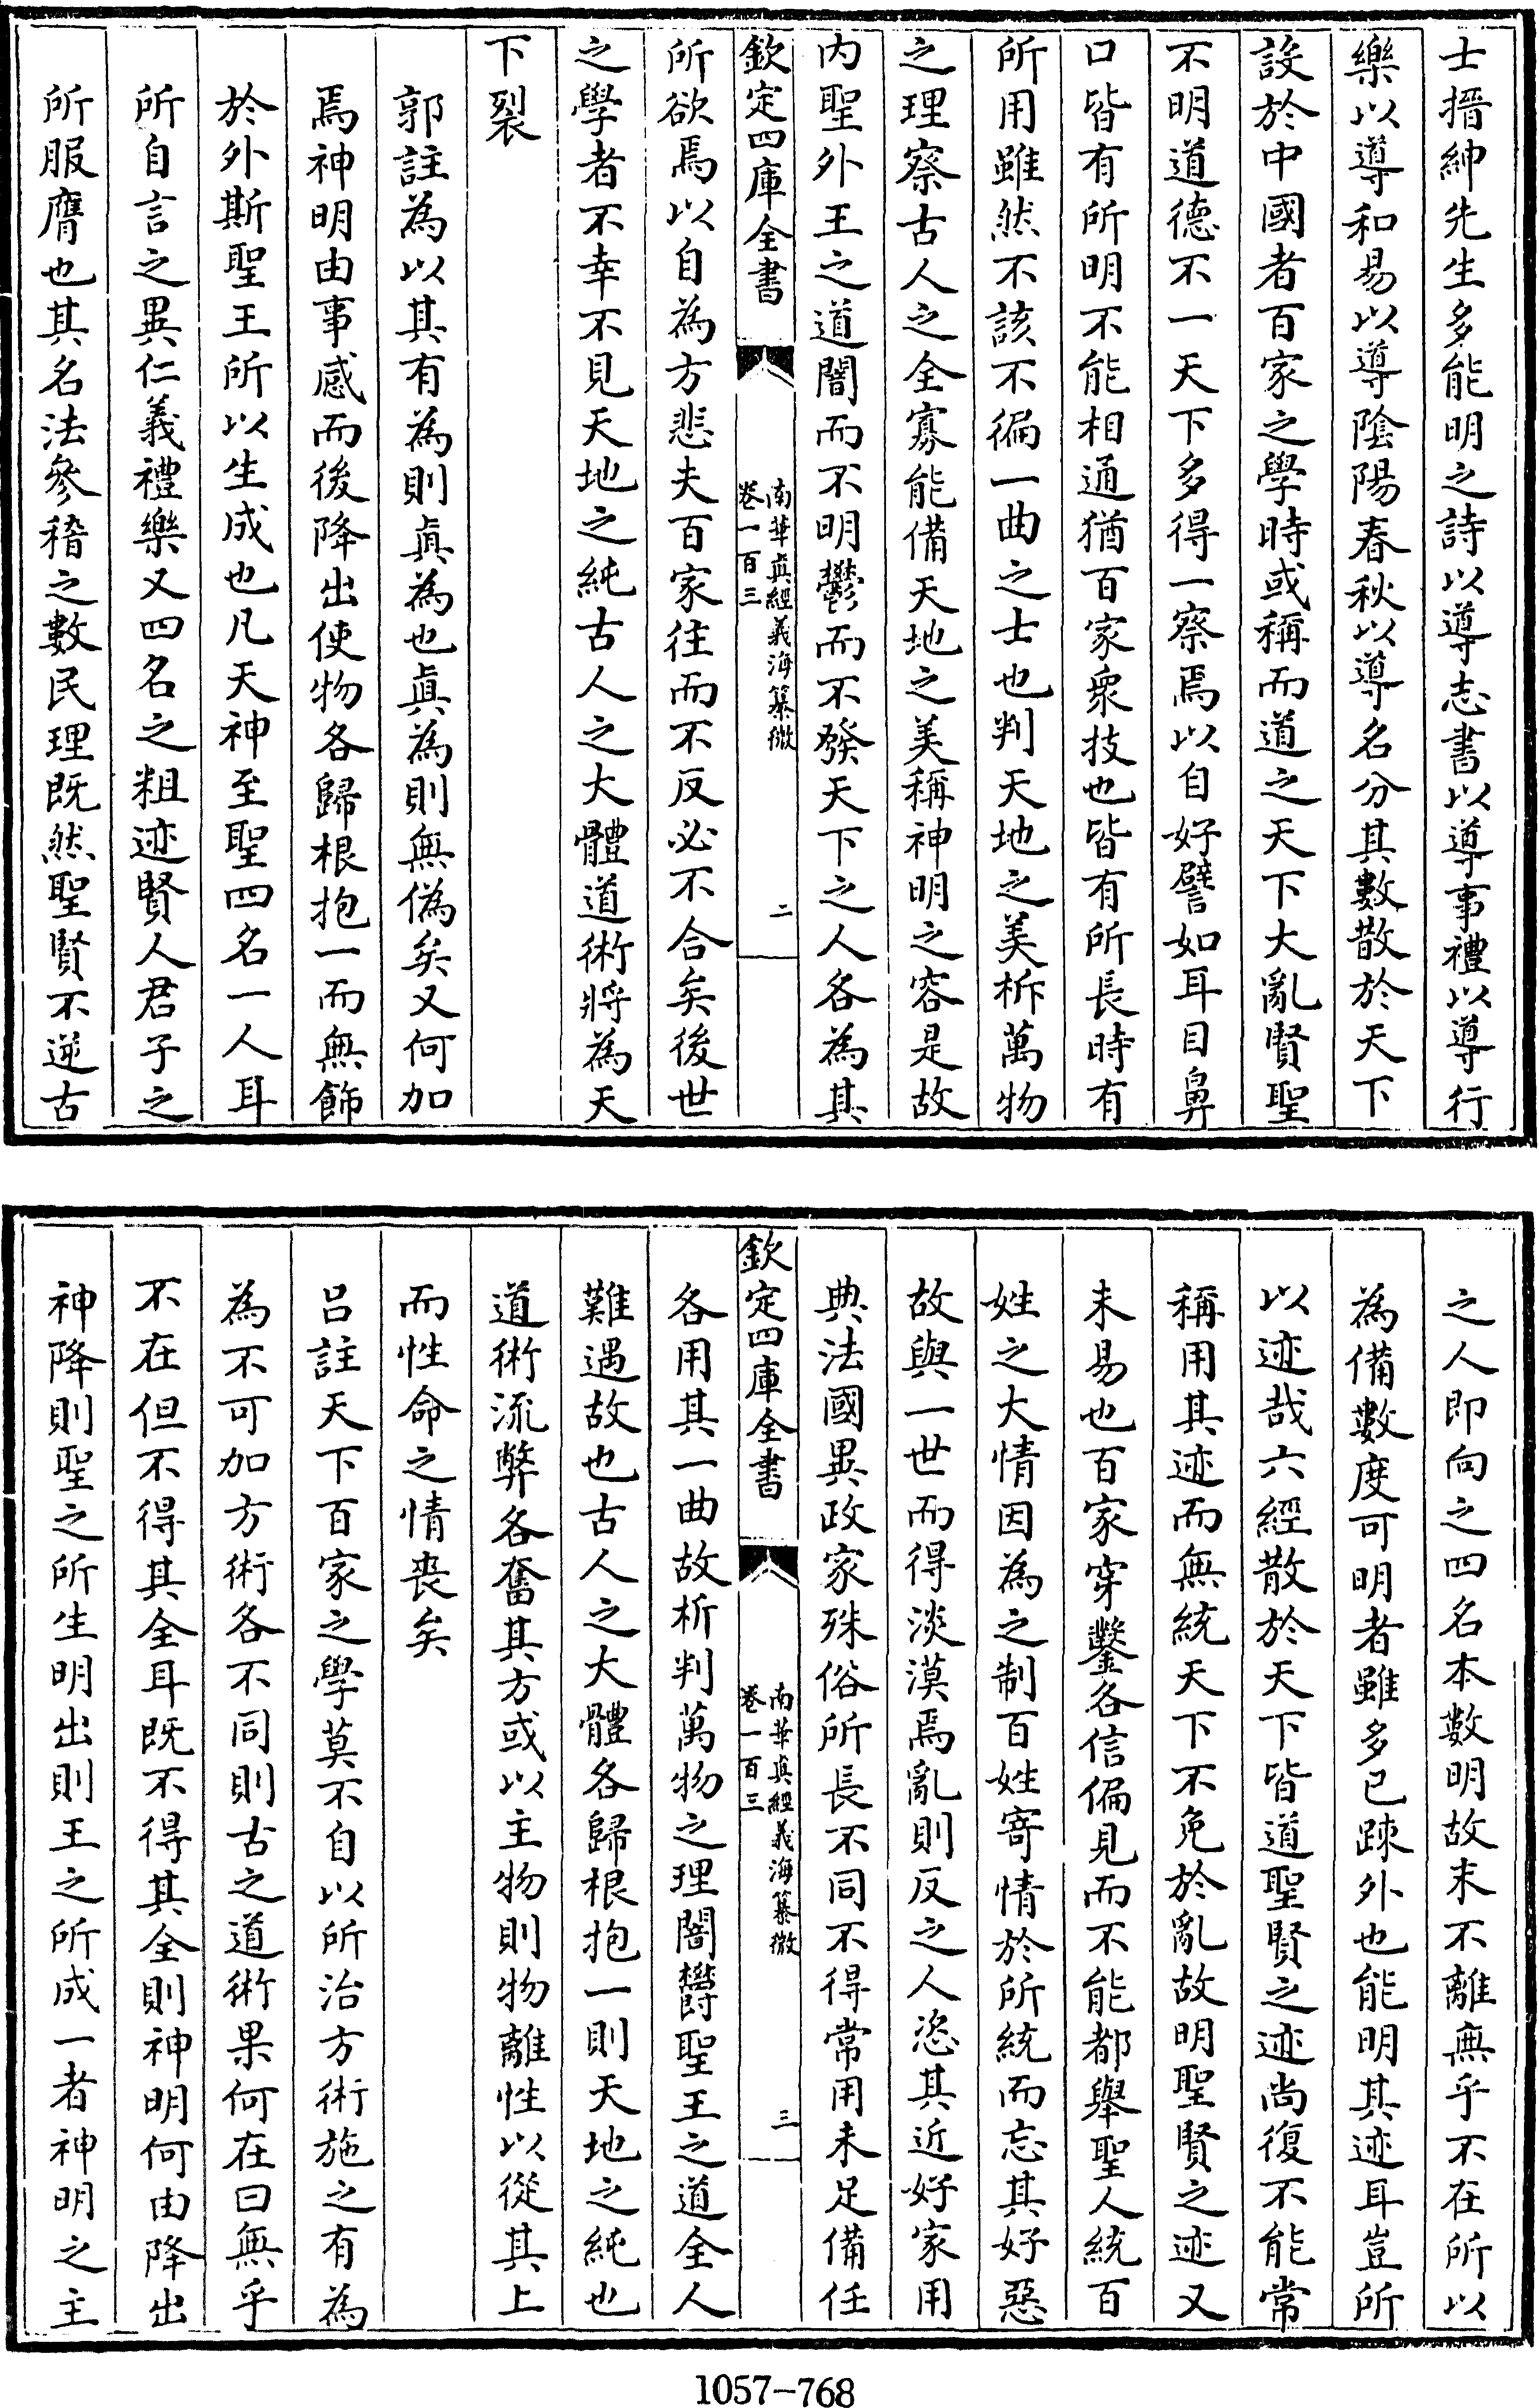 士搢紳先生多能明之詩以導志書以導事禮以導行
樂以導和易以導陰陽春秋以導名分其數散於天下
設於中國者百家之學時或稱而道之天下大亂賢聖
不明道德不一天下多得一察焉以自好譬如耳目鼻
口皆有所明不能相通猶百家衆技也皆有所長時有
所用雖然不該不徧一曲之士也判天地之美柝萬物
之理察古人之全寡能備天地之美稱神明之容是故
内聖外王之道闇而不明鬱而不發天下之人各為其
欽定四庫全書
南華真經義海纂微
卷一百三
二
所欲焉以自為方悲夫百家往而不反必不合矣後世
之學者不幸不見天地之純古人之大體道術將為天
下裂
郭註為以其有為則真為也真為則無偽矣又何加
焉神明由事感而後降出使物各歸根抱一而無飾
於外斯聖王所以生成也凡天神至聖四名一人耳
所自言之異仁義禮樂又四名之粗迹賢人君子之
所服膺也其名法參稽之數民理既然聖賢不逆古
之人即向之四名本數明故末不離無乎不在所以
為備數度可明者雖多已踈外也能明其迹耳豈所
以迹哉六經散於天下皆道聖賢之迹尚復不能常
稱用其迹而無統天下不免於亂故明聖賢之迹又
未易也百家穿鑿各信偏見而不能都舉聖人統百
姓之大情因為之制百姓寄情於所統而忘其好惡
故與一世而得淡漠焉亂則反之人恣其近好家用
典法國異政家殊俗所長不同不得常用未足備任
欽定四庫全書
南華真經義海纂微
卷一百三
三
各用其一曲故析判萬物之理闇鬱聖王之道全人
難遇故也古人之大體各歸根抱一則天地之純也
道術流弊各奮其方或以主物則物離性以從其上
而性命之情喪矣
吕註天下百家之學莫不自以所治方術施之有為
為不可加方術各不同則古之道術果何在曰無乎
不在但不得其全耳既不得其全則神明何由降出
神降則聖之所生明出則王之所成一者神明之主
1057-768